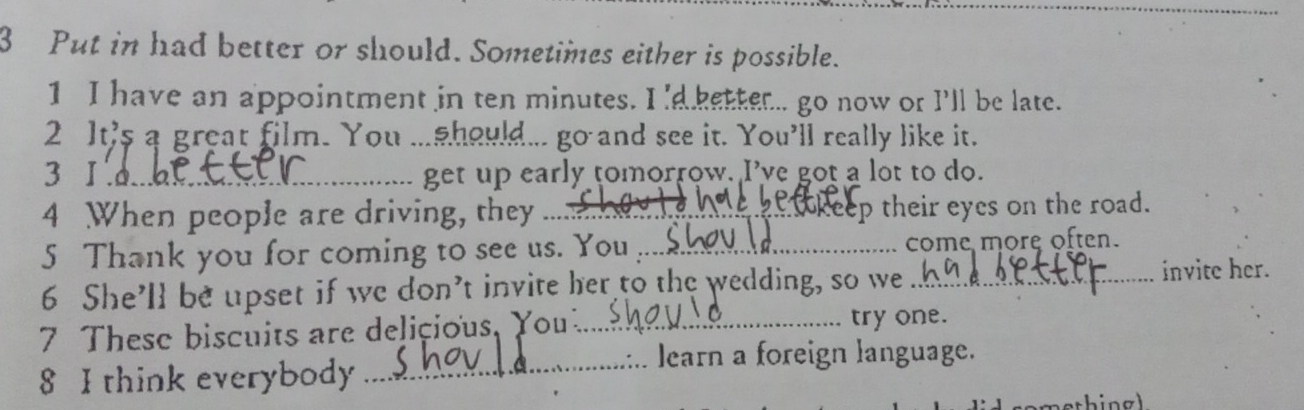 3 Put in had better or should. Sometimes either is possible.
1 I have an appointment in ten minutes. I 'd better go now or I'll be late.
2 It's a great film. You ...should... go and see it. You'll really like it.
3 I'd better get up early tomorrow. I've got a lot to do.
4 When people are driving, they should had better keep their eyes on the road.
5 Thank you for coming to see us. You should come more often.
6 She'll be upset if we don't invite her to the wedding, so we had better invite her.
7 These biscuits are delicious. You should try one.
8 I think everybody should learn a foreign language.
did something).